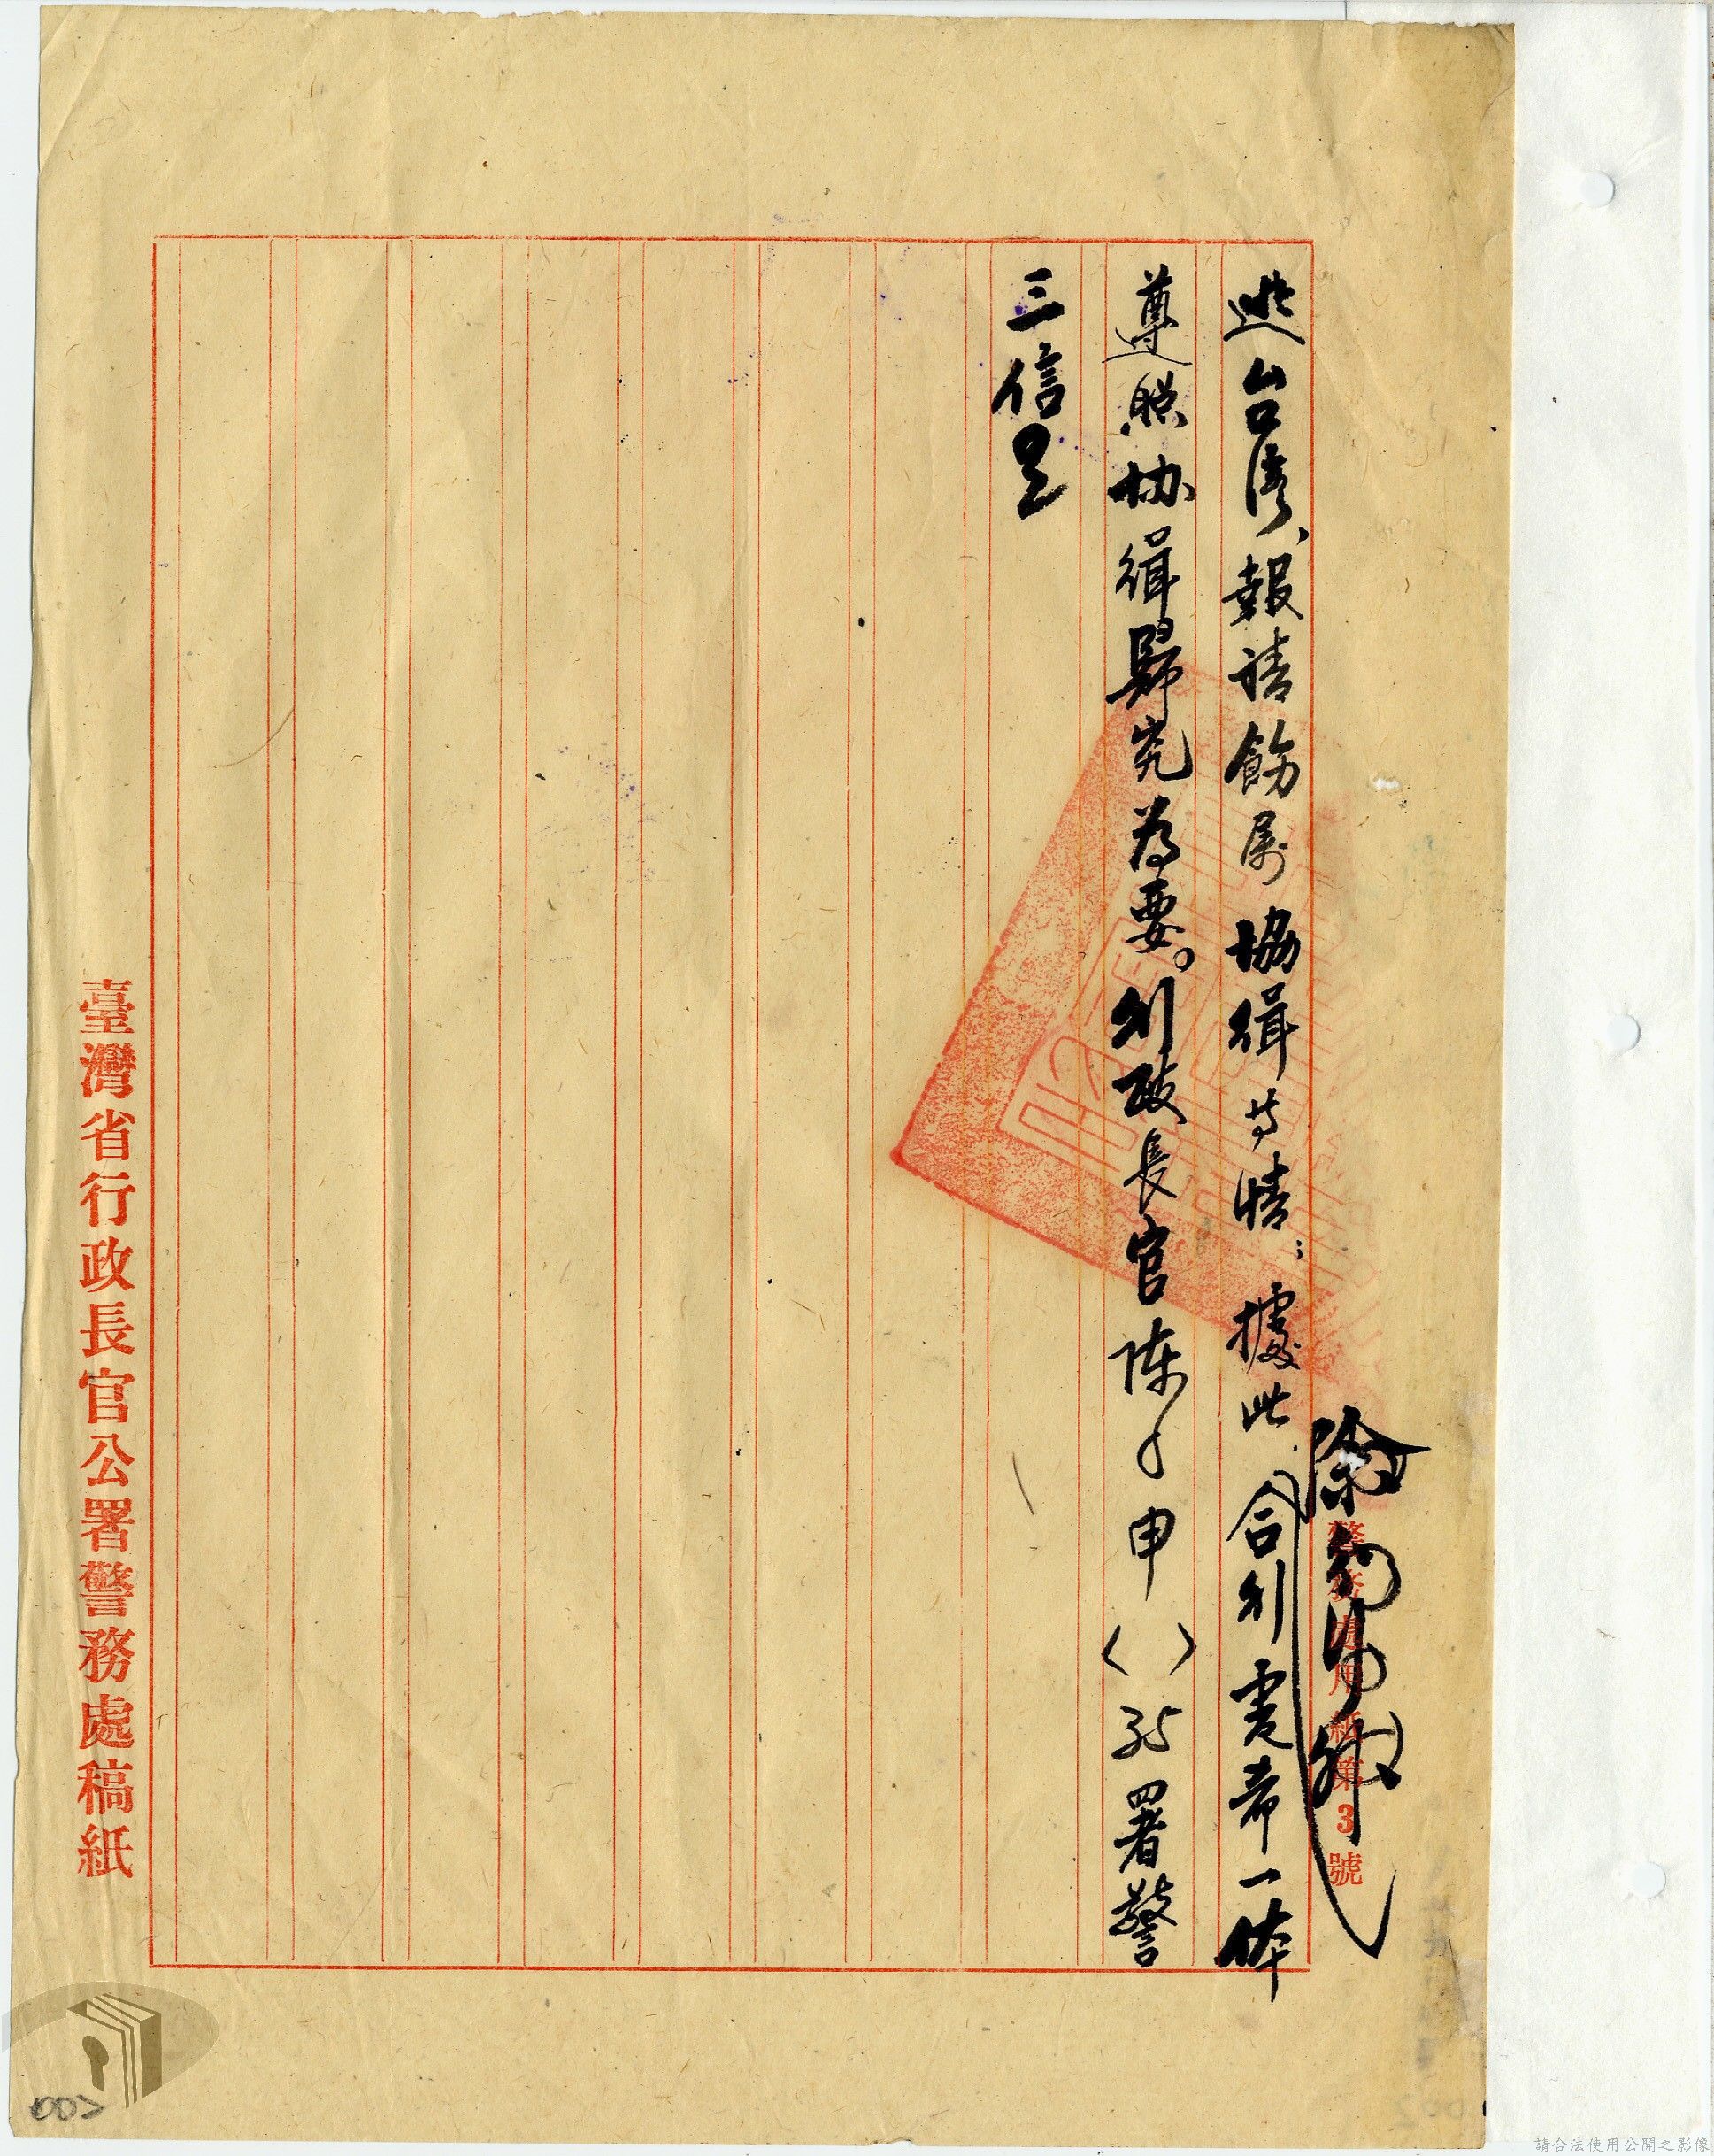 警務處用紙第3號
除
逃台湾、報請飭属協緝等情：據此合行電希一体
遵照協緝歸究為要。行政長官陳申〈 〉署警
三信
臺灣省行政長官公署警務處稿紙
00
請合法使用公開之影像